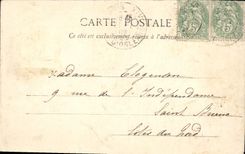 CARTE POSTALE
Ce côté est exclusivement réservé à l'adresse
Madame
9 rue de l'Indépendance
Saint Brieuc
Côtes du Nord